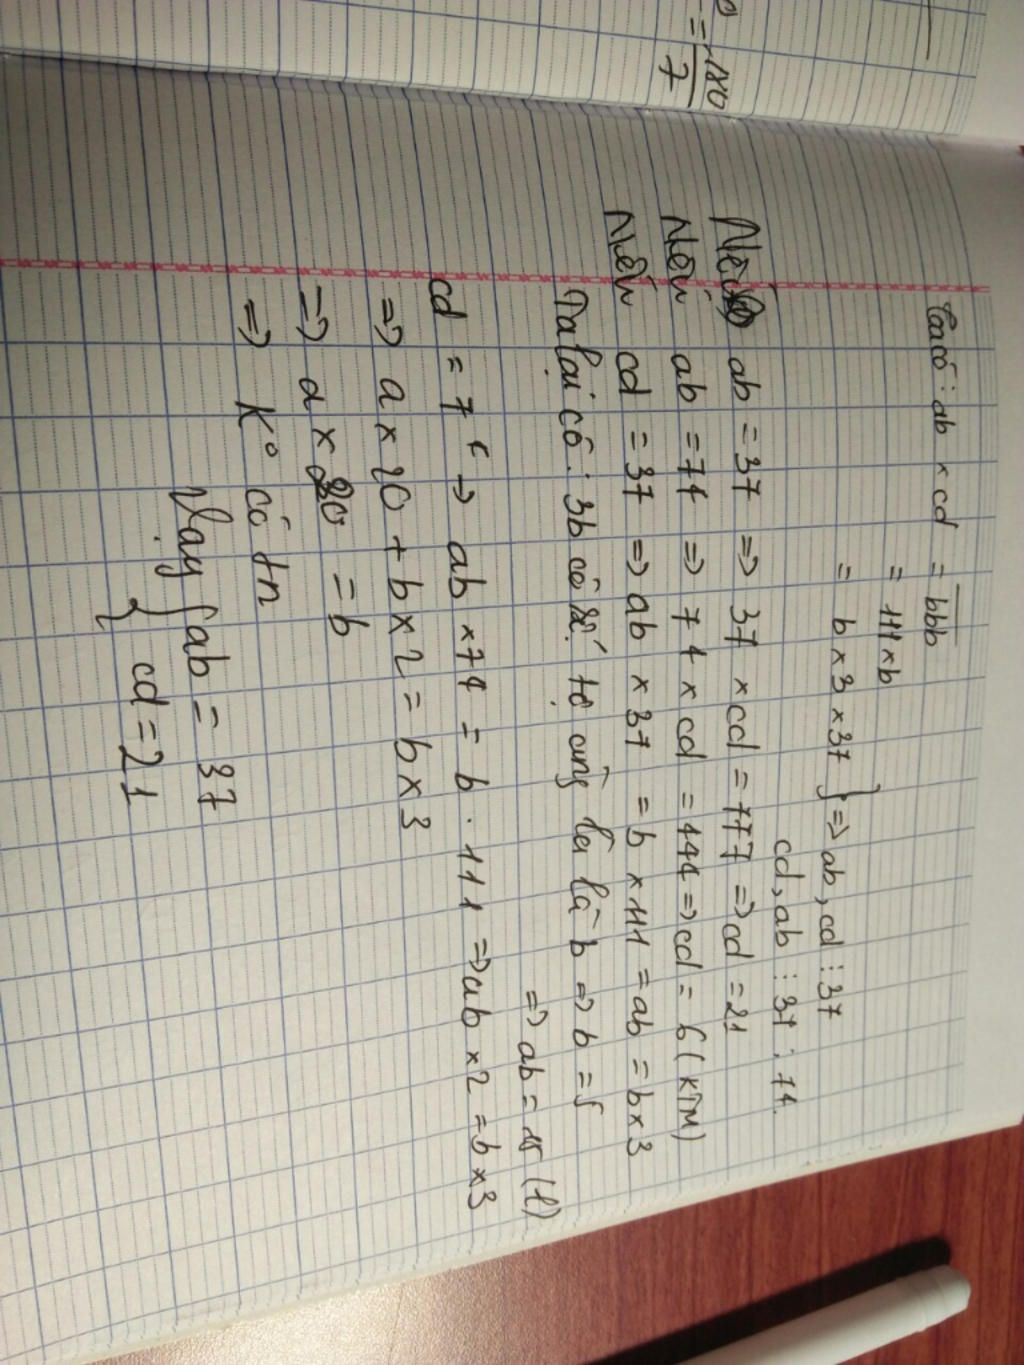 Ta có: ab × cd = \overline{bbb}
= 111 × b
= b × 3 × 37 } => ab, cd ⋮ 37
cd, ab ⋮ 37 ; 74.
Nếu ab = 37 => 37 × cd = 777 => cd = 21
Nếu ab = 74 => 74 × cd = 444 => cd = 6 (KTM)
Nếu cd = 37 => ab × 37 = b × 111 = ab = b × 3
Ta lại có: 3b có số tận cùng là b => b = 5
=> ab = 15 (L)
cd = 74 -> ab × 74 = b . 111 => ab × 2 = b × 3
=> a × 20 + b × 2 = b × 3
=> a × 20 = b
=> K° có tn
Vậy { ab = 37
{ cd = 21
= 180
7